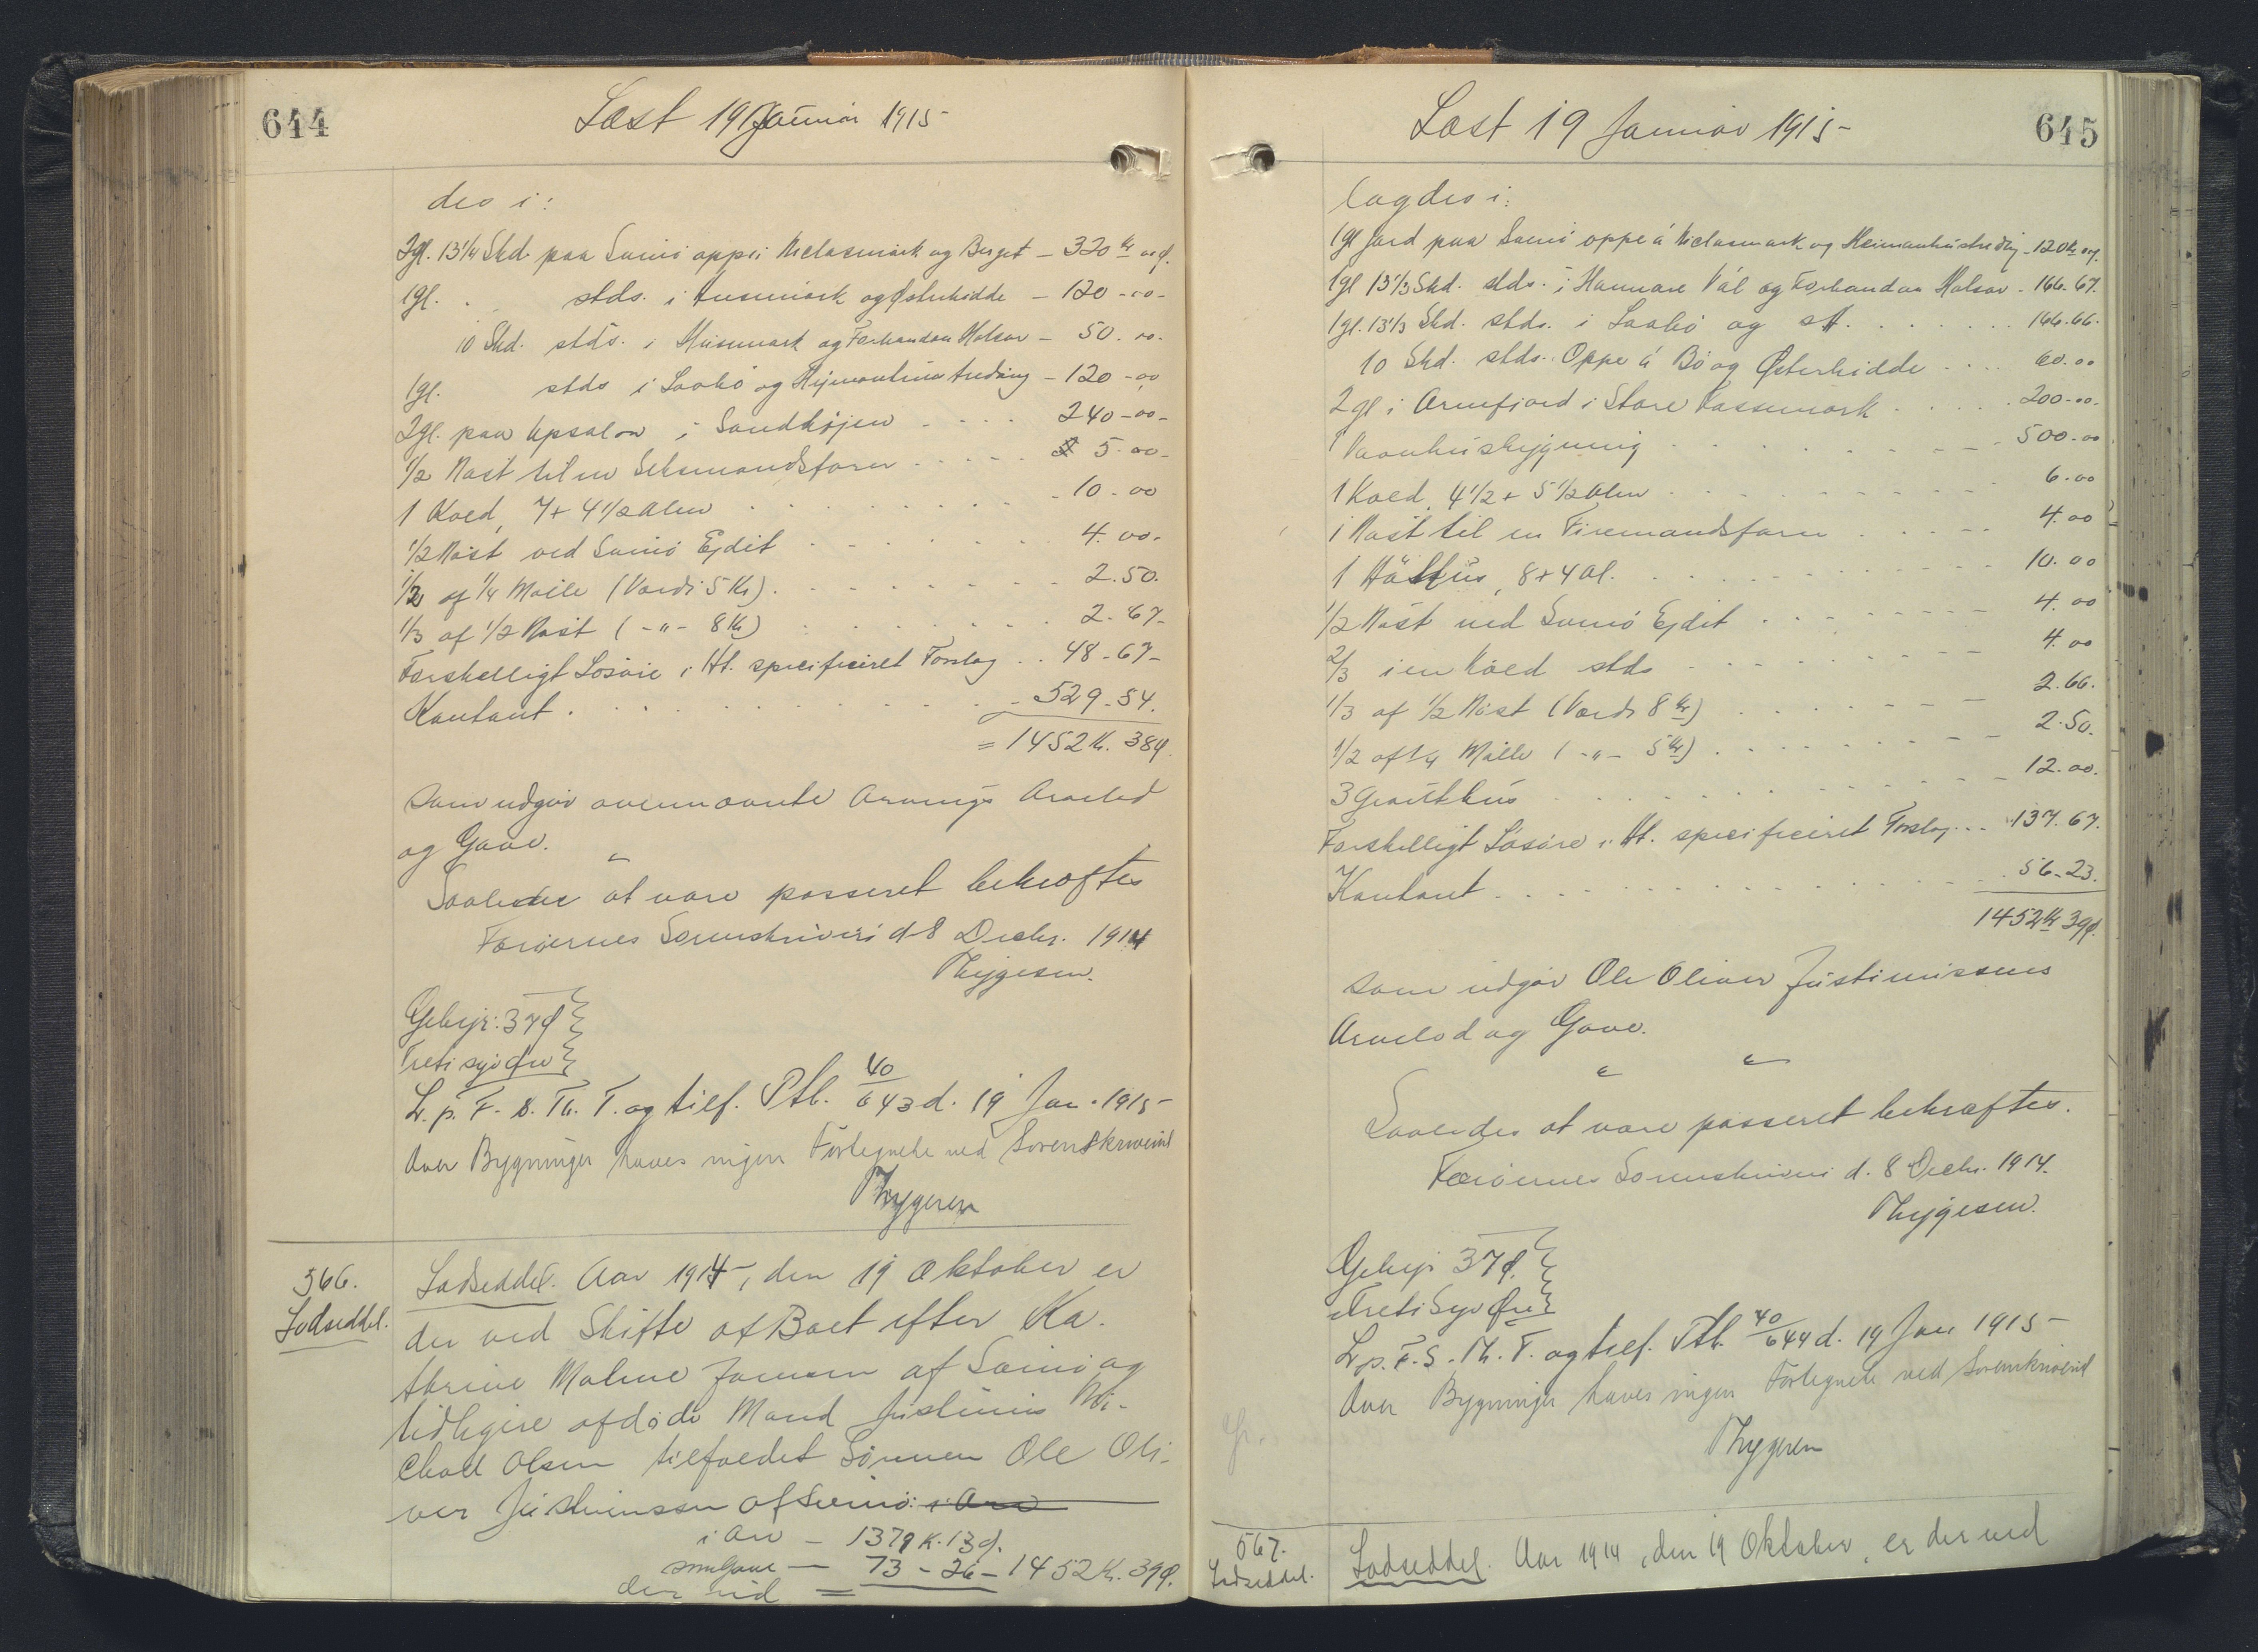 644
Læst 19 Januar 1915
des i:
2gl. 13¼ Skd. paa Sumö oppi Niclasmark og Berget - 320 Kr øre.
1gl. . stds. i Husmark og Østerhidde - 120-00-
10 Skd. stds. i Húsmark og Forhandan Halsar - 50.00.
1gl. stds i Laahö og Heimanhúsatreding - 120-00
2gl. paa Upsalon i Sandhöjen . . . . 240-00-
½ Nöst til en Seksmandsfarer . . . . . 5.00-
1 Kved, 7 + 4½ Alen . . . . . . 10.00
½ Nöst ved Sumö Ejdet . . . . . . . 4.00-
½ af ¼ Mölle (Værdi 5 Kr) . . . . . . 2.50.
⅓ af ½ Nöst ( -"- 8 Kr) . . . . . . . 2.67-
Forskelligt Lösöre i Ht. specificeret Forslag . . 48-67-
Kontant . . . . . . . . . . . 529-54.
= 1452 Kr. 38 ø.
som udgør ovennævnte Arvings Arvelod
og Gave.
Saaledes at være passeret bekræftes
Færøernes Sorenskriveri d. 8 Decbr. 1914
Thygesen.
Gebyr: 37 ø
Treti syv Øre
L. p. F. S. Th. T. og tilf. Ptb. 40/643 d. 19 Jan. 1915
Over Bygninger haves ingen Fortegnelse ved Sorenskriveriet
Thygesen
366.
Lodseddel.
Lodseddel. Aar 1914, den 19 Oktober er
der ved Skifte af Boet efter Ka-
thrine Malene Joensen af Sumö og
tidligere afdöde Mand Justinus Mi-
chael Olsen tilfaldet Sönnen Ole Oli-
ver Justinussen af Sumö: i Arv
i Arv - 1379 K. 13 ø.
som Gave - 73 - 26 - 1452 Kr. 39 ø.
der ved =
Læst 19 Januar 1915
645
lagdes i:
1gl Jord paa Sumö oppe á Niclasmark og Heimanhústreding - 120 Kr ø.
1gl 13⅓ Skd. stds. i Hannare Vál og Forhandan Halsar - 166.67.
1gl. 13⅓ Skd. stds. i Laahö og st. . . . . . . 166.66.
10 Skd. stds. Oppe á Bö og Østerhidde . . . . 60.00
2gl i Arnefjord i Store Kassemark . . . . . 200-00-
1 Vaanhúsbygning . . . . . . . 500-00
1 Kved, 4½ + 5½ Alen . . . . . . . . 6.00
1 Nöst til en Firemandsfarer . . . . . 4.00
1 Hölhús, 8 + 4 Al. . . . . . . . . 10.00
½ Nöst ved Sumö Ejdet . . . . . . . 4.00
⅔ i en Kved stds . . . . . . . . 4.00
⅓ af ½ Nöst (Værdi 8 Kr) . . . . . . 2.66.
½ af ¼ Mölle ( -"- 5 Kr) . . . . . . . 2.50.
3 Grothús . . . . . . . . . 12.00.
Forskelligt Lösöre i Ht. specificeret Forslag . . . 137.67.
Kontant . . . . . . . . . . . 56-23.
1452 Kr 39 ø.
som udgør Ole Oliver Justinussens
Arvelod og Gave.
Saaledes at være passeret bekræftes.
Færöernes Sorenskriveri d. 8 Decbr. 1914.
Thygesen.
Gebyr 37 ø.
Treti Syv Øre
L. p. F. S. Th. T. og tilf. Ptb. 40/644 d. 19 Jan 1915
Over Bygninger haves ingen Fortegnelse ved Sorenskriveriet
Thygesen
567.
Lodseddel.
Lodseddel. Aar 1914, den 19 Oktober, er der ved